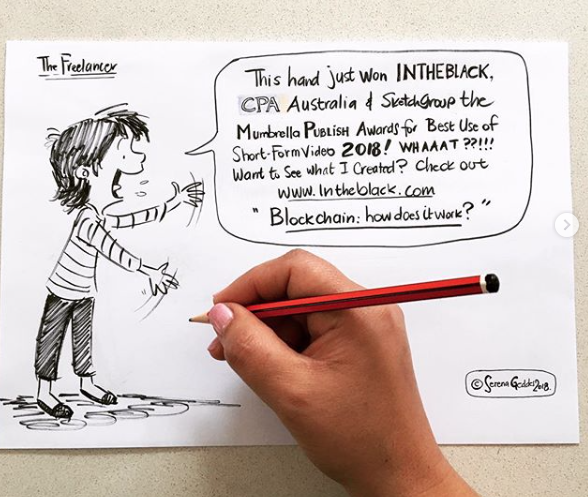 The Freelancer
This hand just won INTHEBLACK,
CPA Australia & SketchGroup the
Mumbrella PUBLISH Awards for Best Use of
Short-Form Video 2018! WHAAAT ??!!!
Want to See what I Created? Check out
www.Intheblack.com
"Blockchain: how does it work?"
© Serena Geddes 2018.